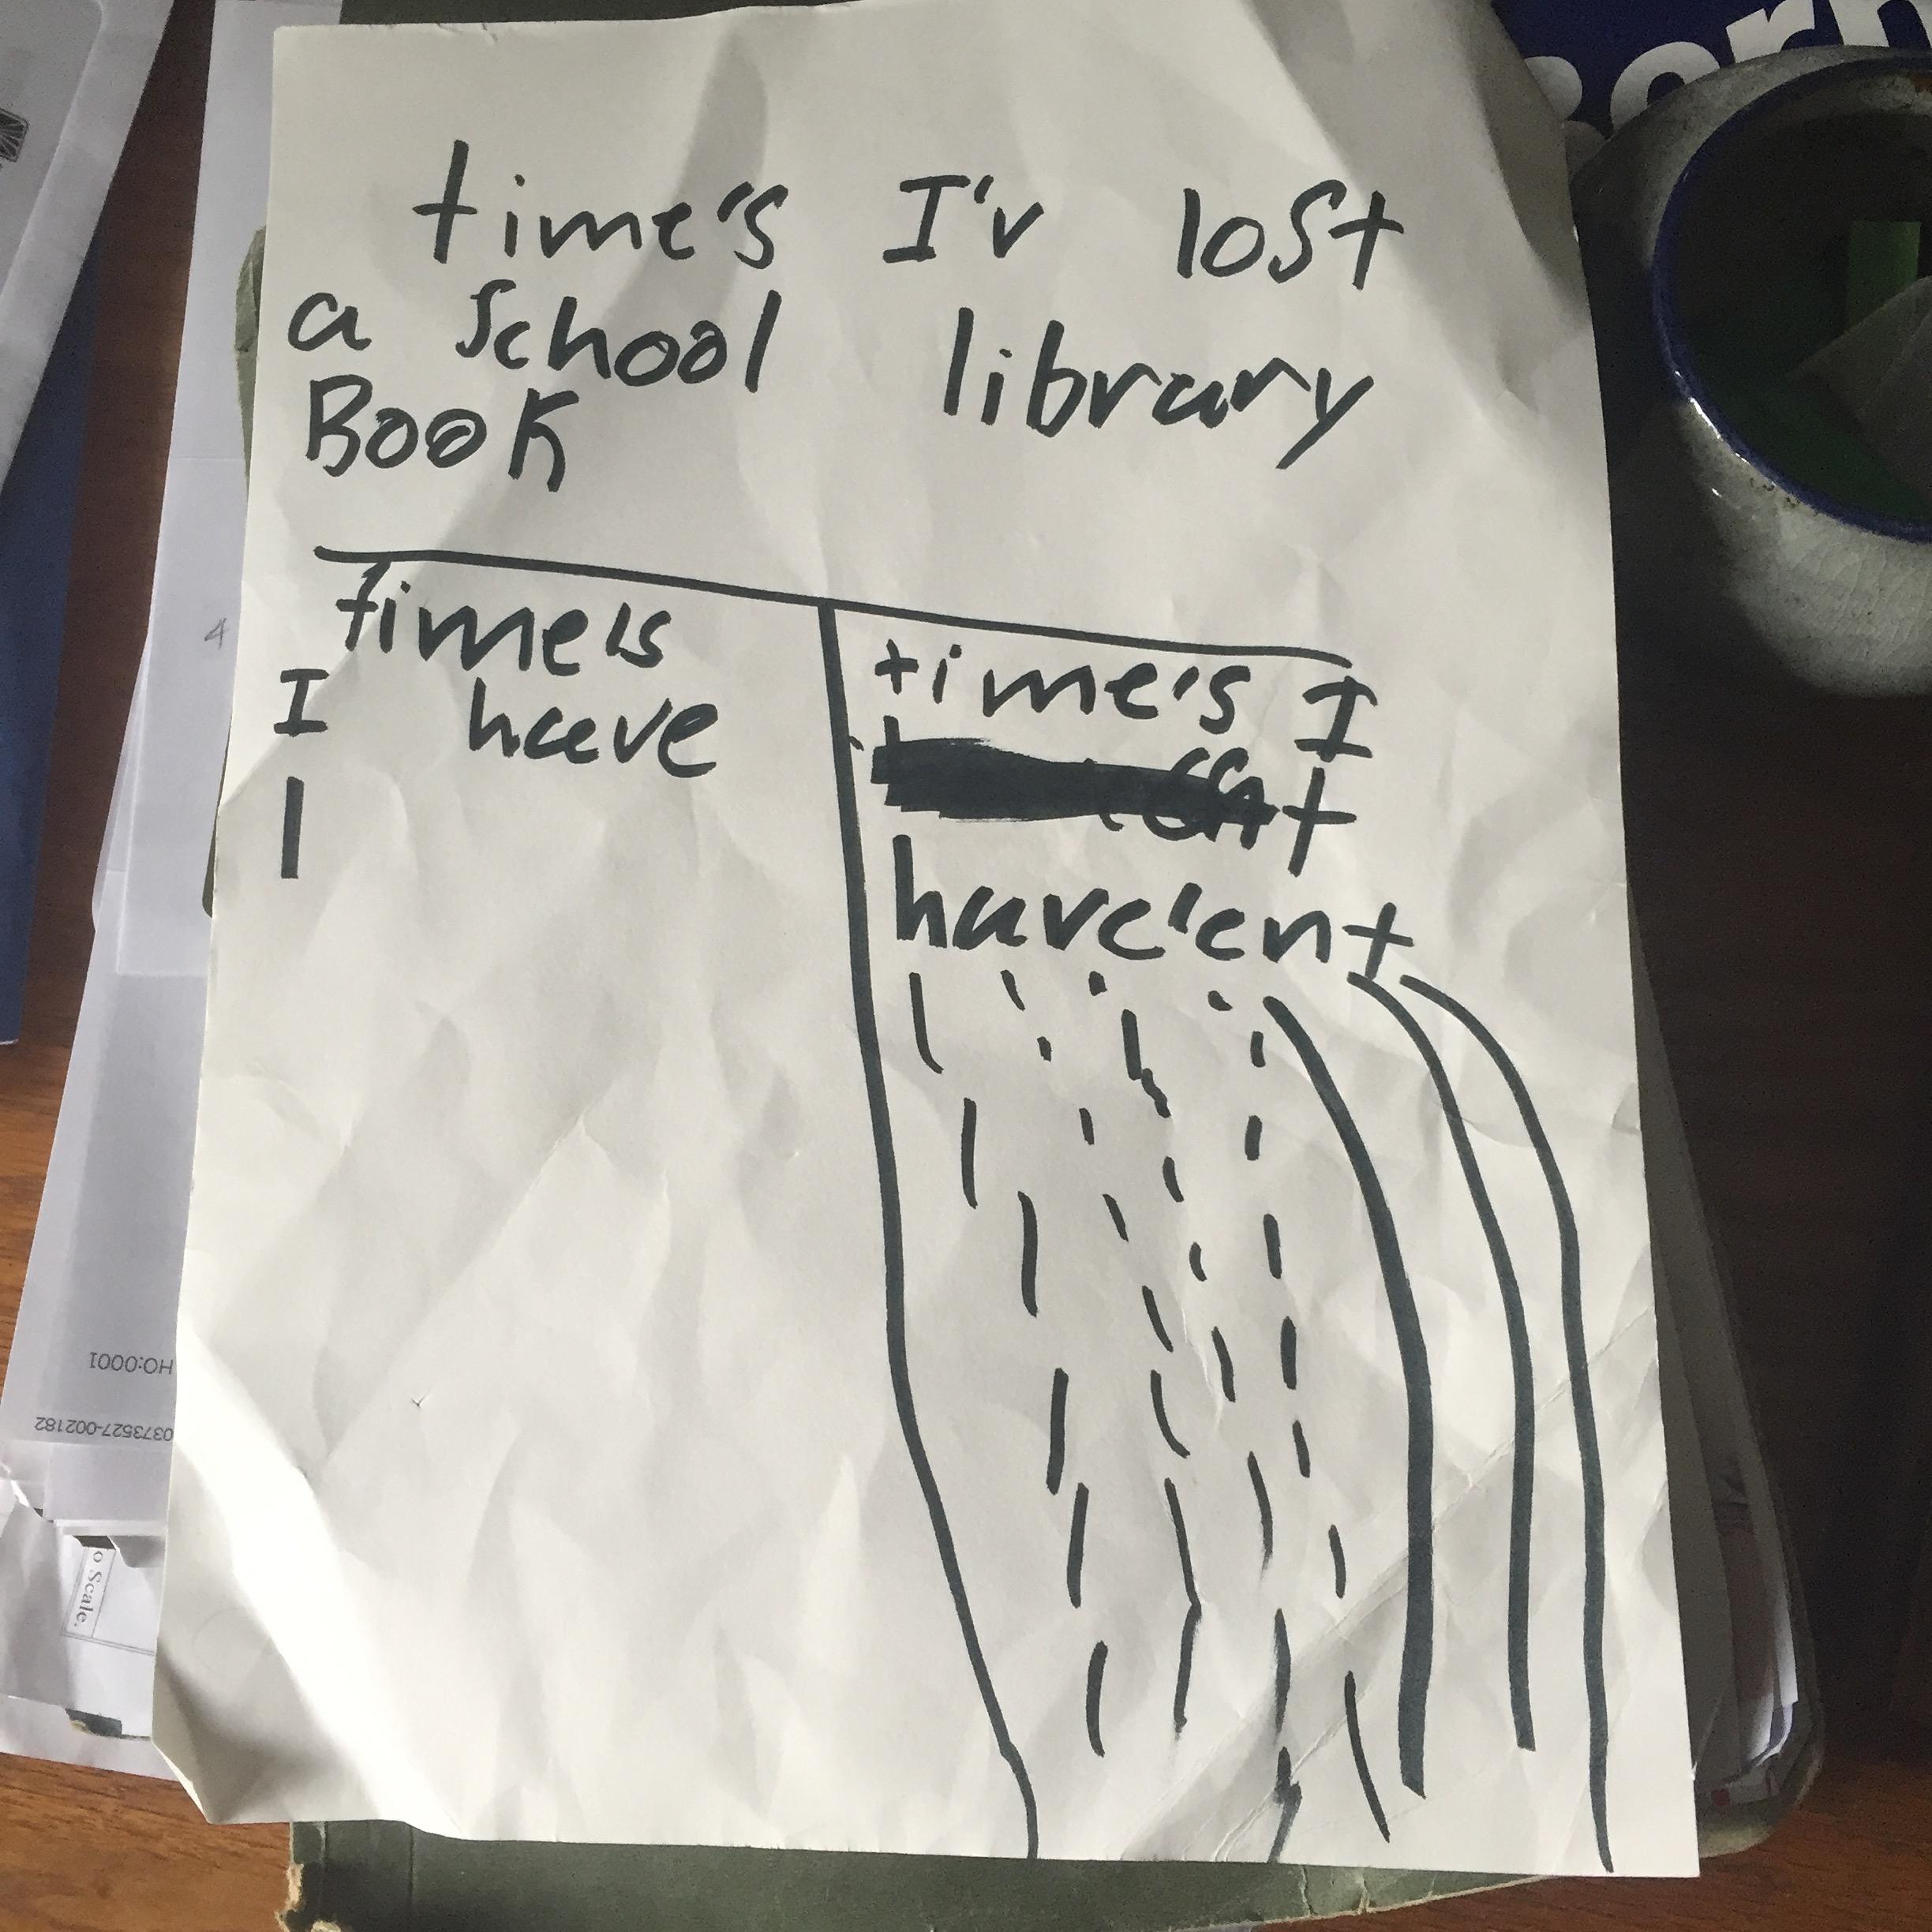 time's I'v lost
a school library
Book
time's
I have
|
time's I
have'ent
4
HO:0001
0373527-002182
o Scale.